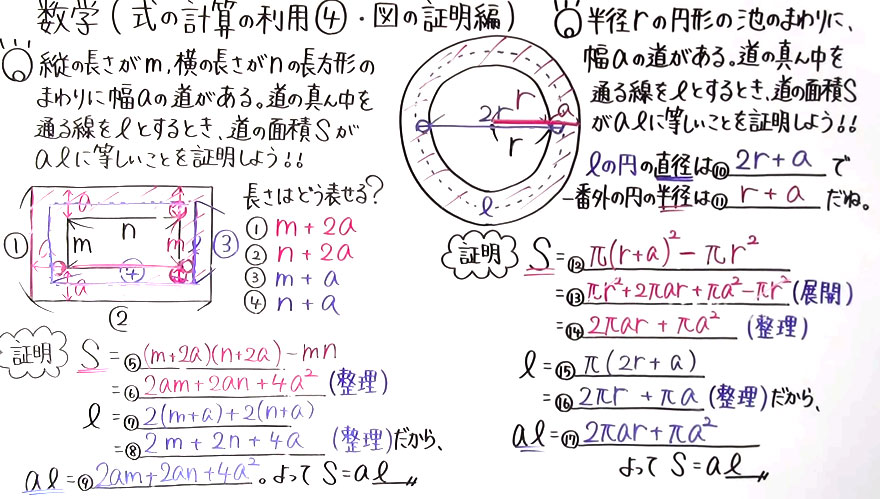 数学(式の計算の利用④・図の証明編)
縦の長さがm,横の長さがnの長方形の
まわりに幅aの道がある。道の真ん中を
通る線をℓとするとき、道の面積Sが
aℓに等しいことを証明しよう!!
長さはどう表せる?
① m+2a
② n+2a
③ m+a
④ n+a
a
n
m
m
ℓ
a
a
①
②
③
④
証明 S=⑤(m+2a)(n+2a)-mn
=⑥2am+2an+4a²(整理)
ℓ=⑦2(m+a)+2(n+a)
=⑧2m+2n+4a(整理)だから、
aℓ=⑨2am+2an+4a²。よってS=aℓ〃
半径rの円形の池のまわりに、
幅aの道がある。道の真ん中を
通る線をℓとするとき、道の面積S
がaℓに等しいことを証明しよう!!
r
a
2r
r
ℓ
ℓの円の直径は⑩2r+aで
一番外の円の半径は⑪r+aだね。
証明 S=⑫π(r+a)²-πr²
=⑬πr²+2πar+πa²-πr²(展開)
=⑭2πar+πa²(整理)
ℓ=⑮π(2r+a)
=⑯2πr+πa(整理)だから、
aℓ=⑰2πar+πa²
よってS=aℓ〃